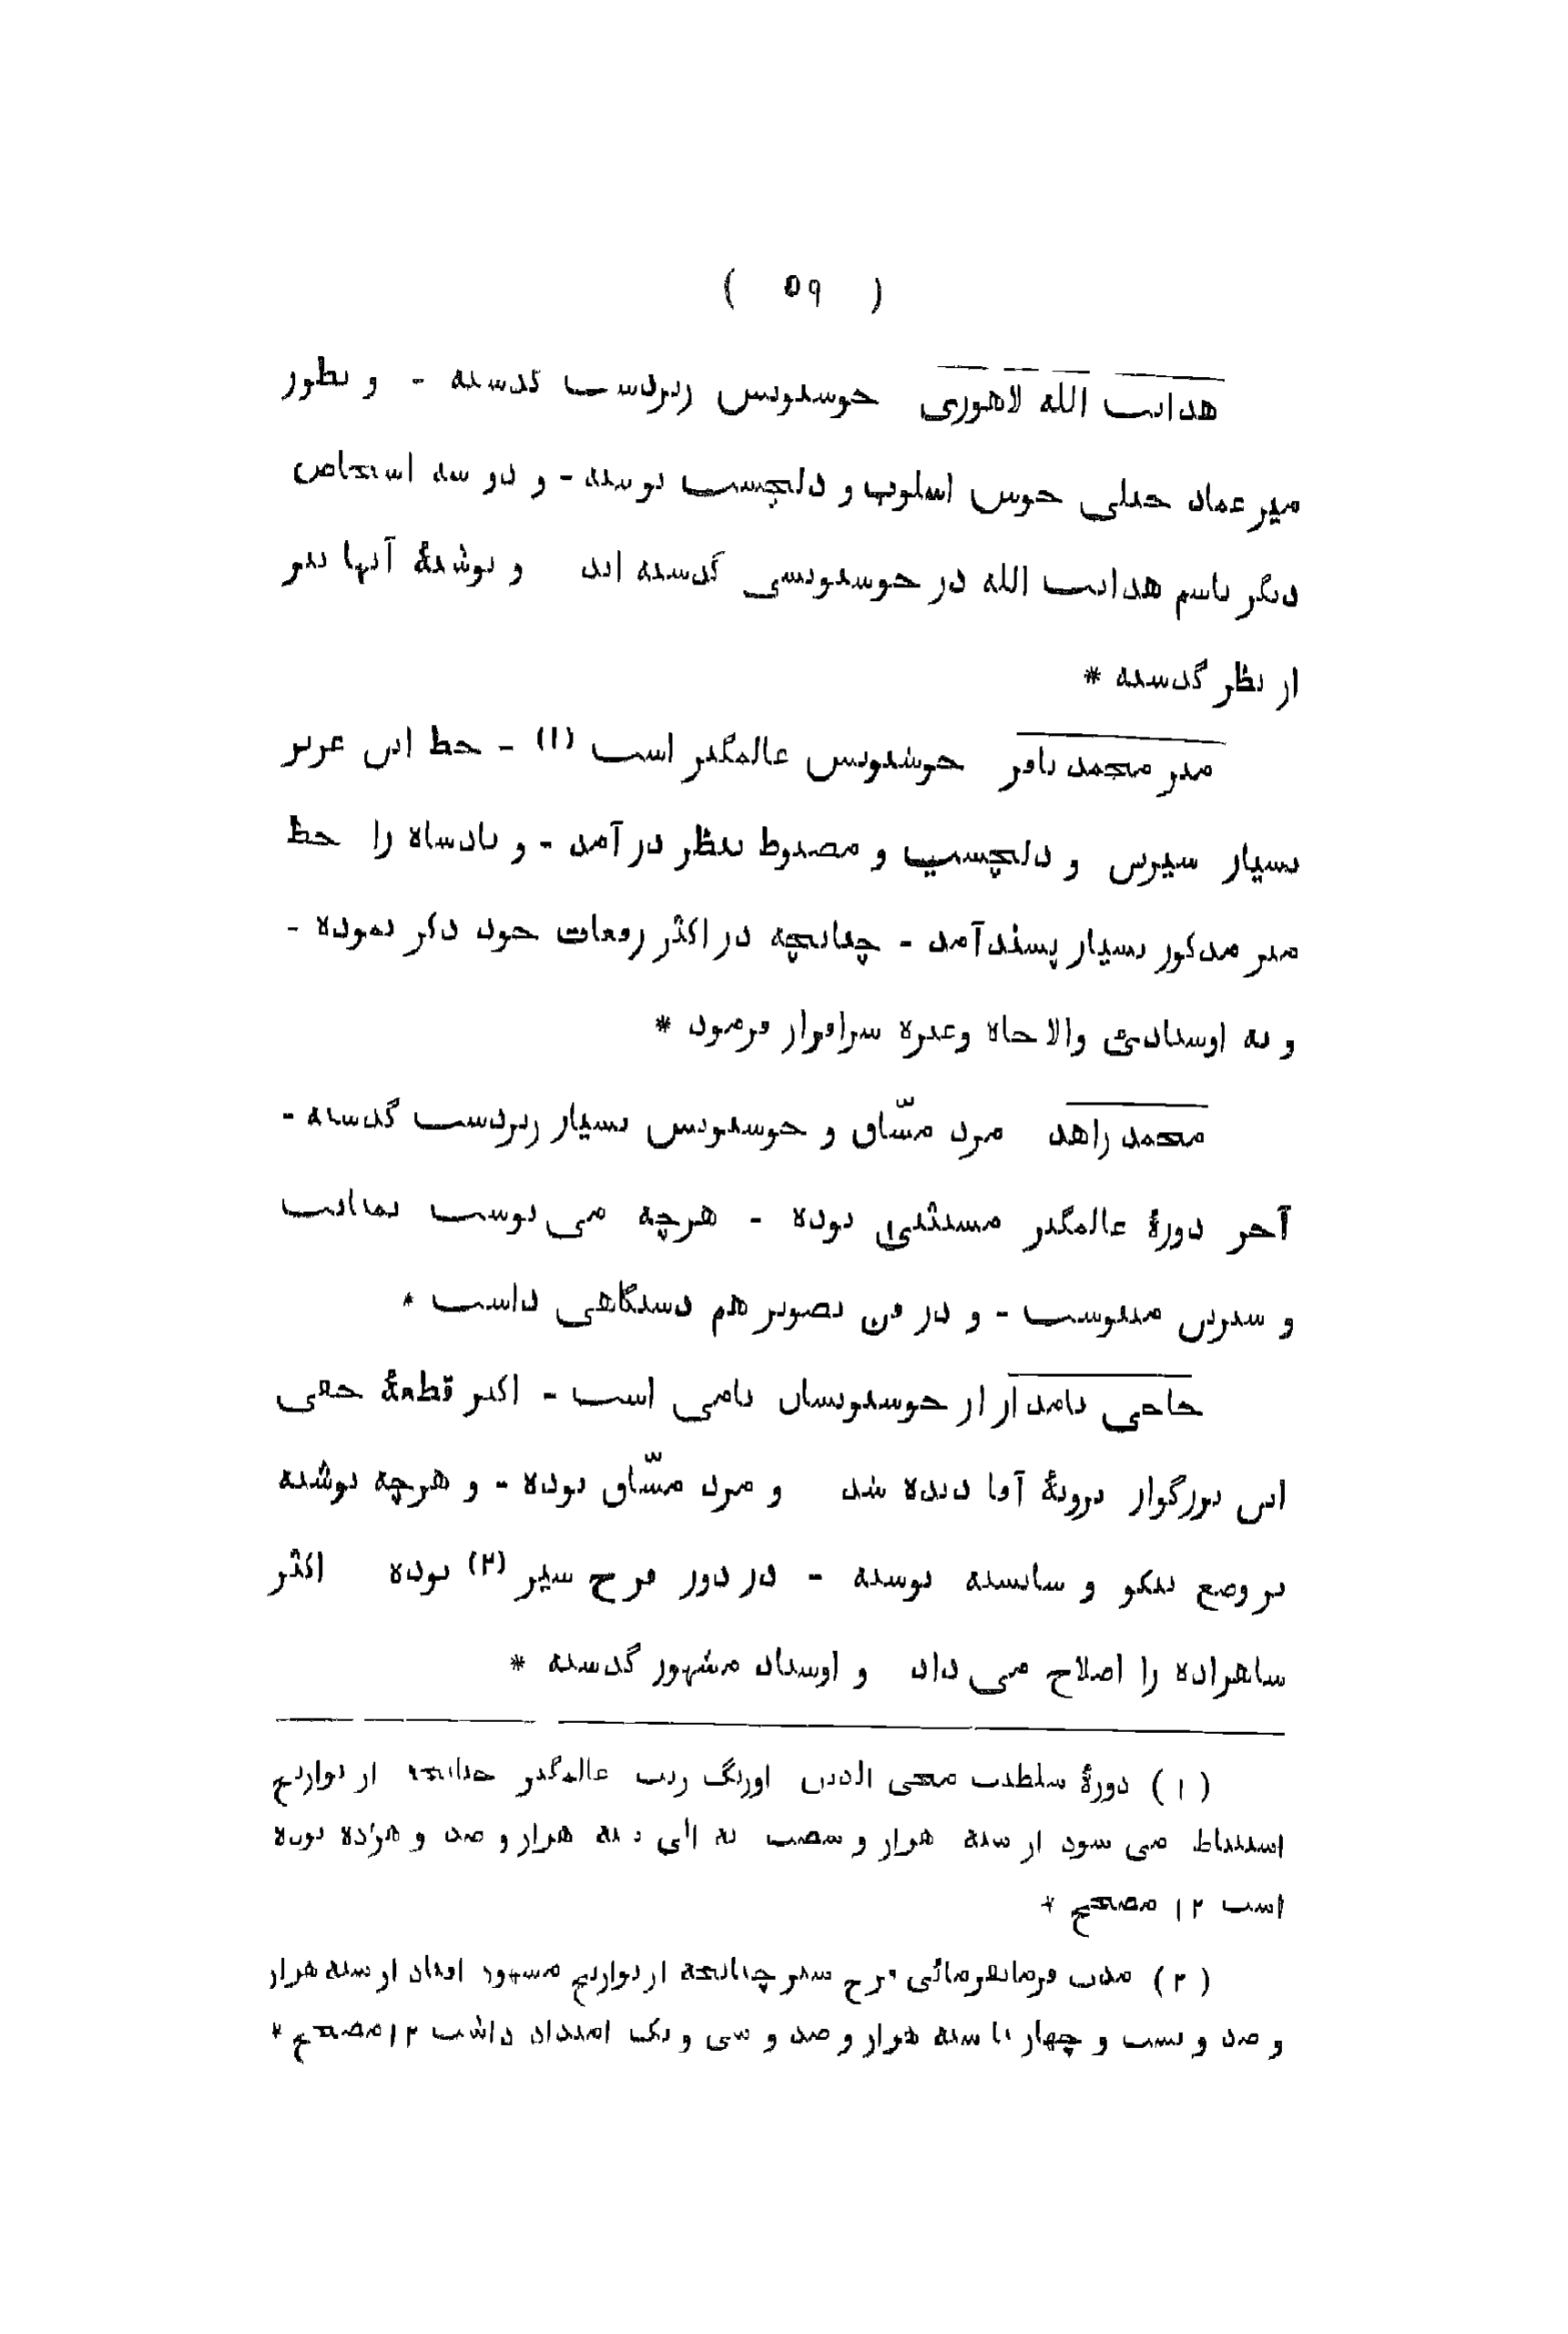 ( ٥٩ )
هدایت الله لاهوری خوشنویس زبردست گذشته - و بطور
میر عماد خیلی خوش اسلوب و دلچسپ نوشته - و دو سه اشخاص
دیگر باسم هدایت الله در خوشنویسی گذشته اند و نوشتهٔ آنها نیز
از نظر گذشته *
میر محمد باقر خوشنویس عالمگیر است (۱) - خط این عزیز
بسیار شیرین و دلچسپ و مضبوط بنظر در آمد - و بادشاه را خط
میر مذکور بسیار پسند آمد - چنانچه در اکثر رقعات خود ذکر نموده -
و به اوستادئ والا جاه وغیره سرافراز فرمود *
محمد زاهد مرد مشّاق و خوشنویس بسیار زبردست گذشته -
آخر دورهٔ عالمگیر مستثنی بوده - هرچه می نوشت بمتانت
و شیرین مینوشت - و در فن تصویر هم دستگاهی داشت *
حاجی نامدار از خوشنویسان نامی است - اکثر قطعهٔ خفی
این بزرگوار برویهٔ آقا دیده شد و مرد مشّاق بوده - و هرچه نوشته
بر وضع نیکو و شایسته نوشته - در دور فرخ سیر (۲) بوده اکثر
شاهزاده را اصلاح می داد و اوستاد مشهور گذشته *
(۱) دورهٔ سلطنت محی الدین اورنگ زیب عالمگیر چنانچه از تواریخ
استنباط می شود از سنه هزار و شصت و نه هزار و صد و هژده بوده
است ۱۲ مصحح *
(۲) مدت فرمانفرمائی فرخ سیر چنانچه از تواریخ از سنه هزار
و صد و بست و چهار تا سنه هزار و صد و سی و یک امتداد داشت ۱۲ مصحح *